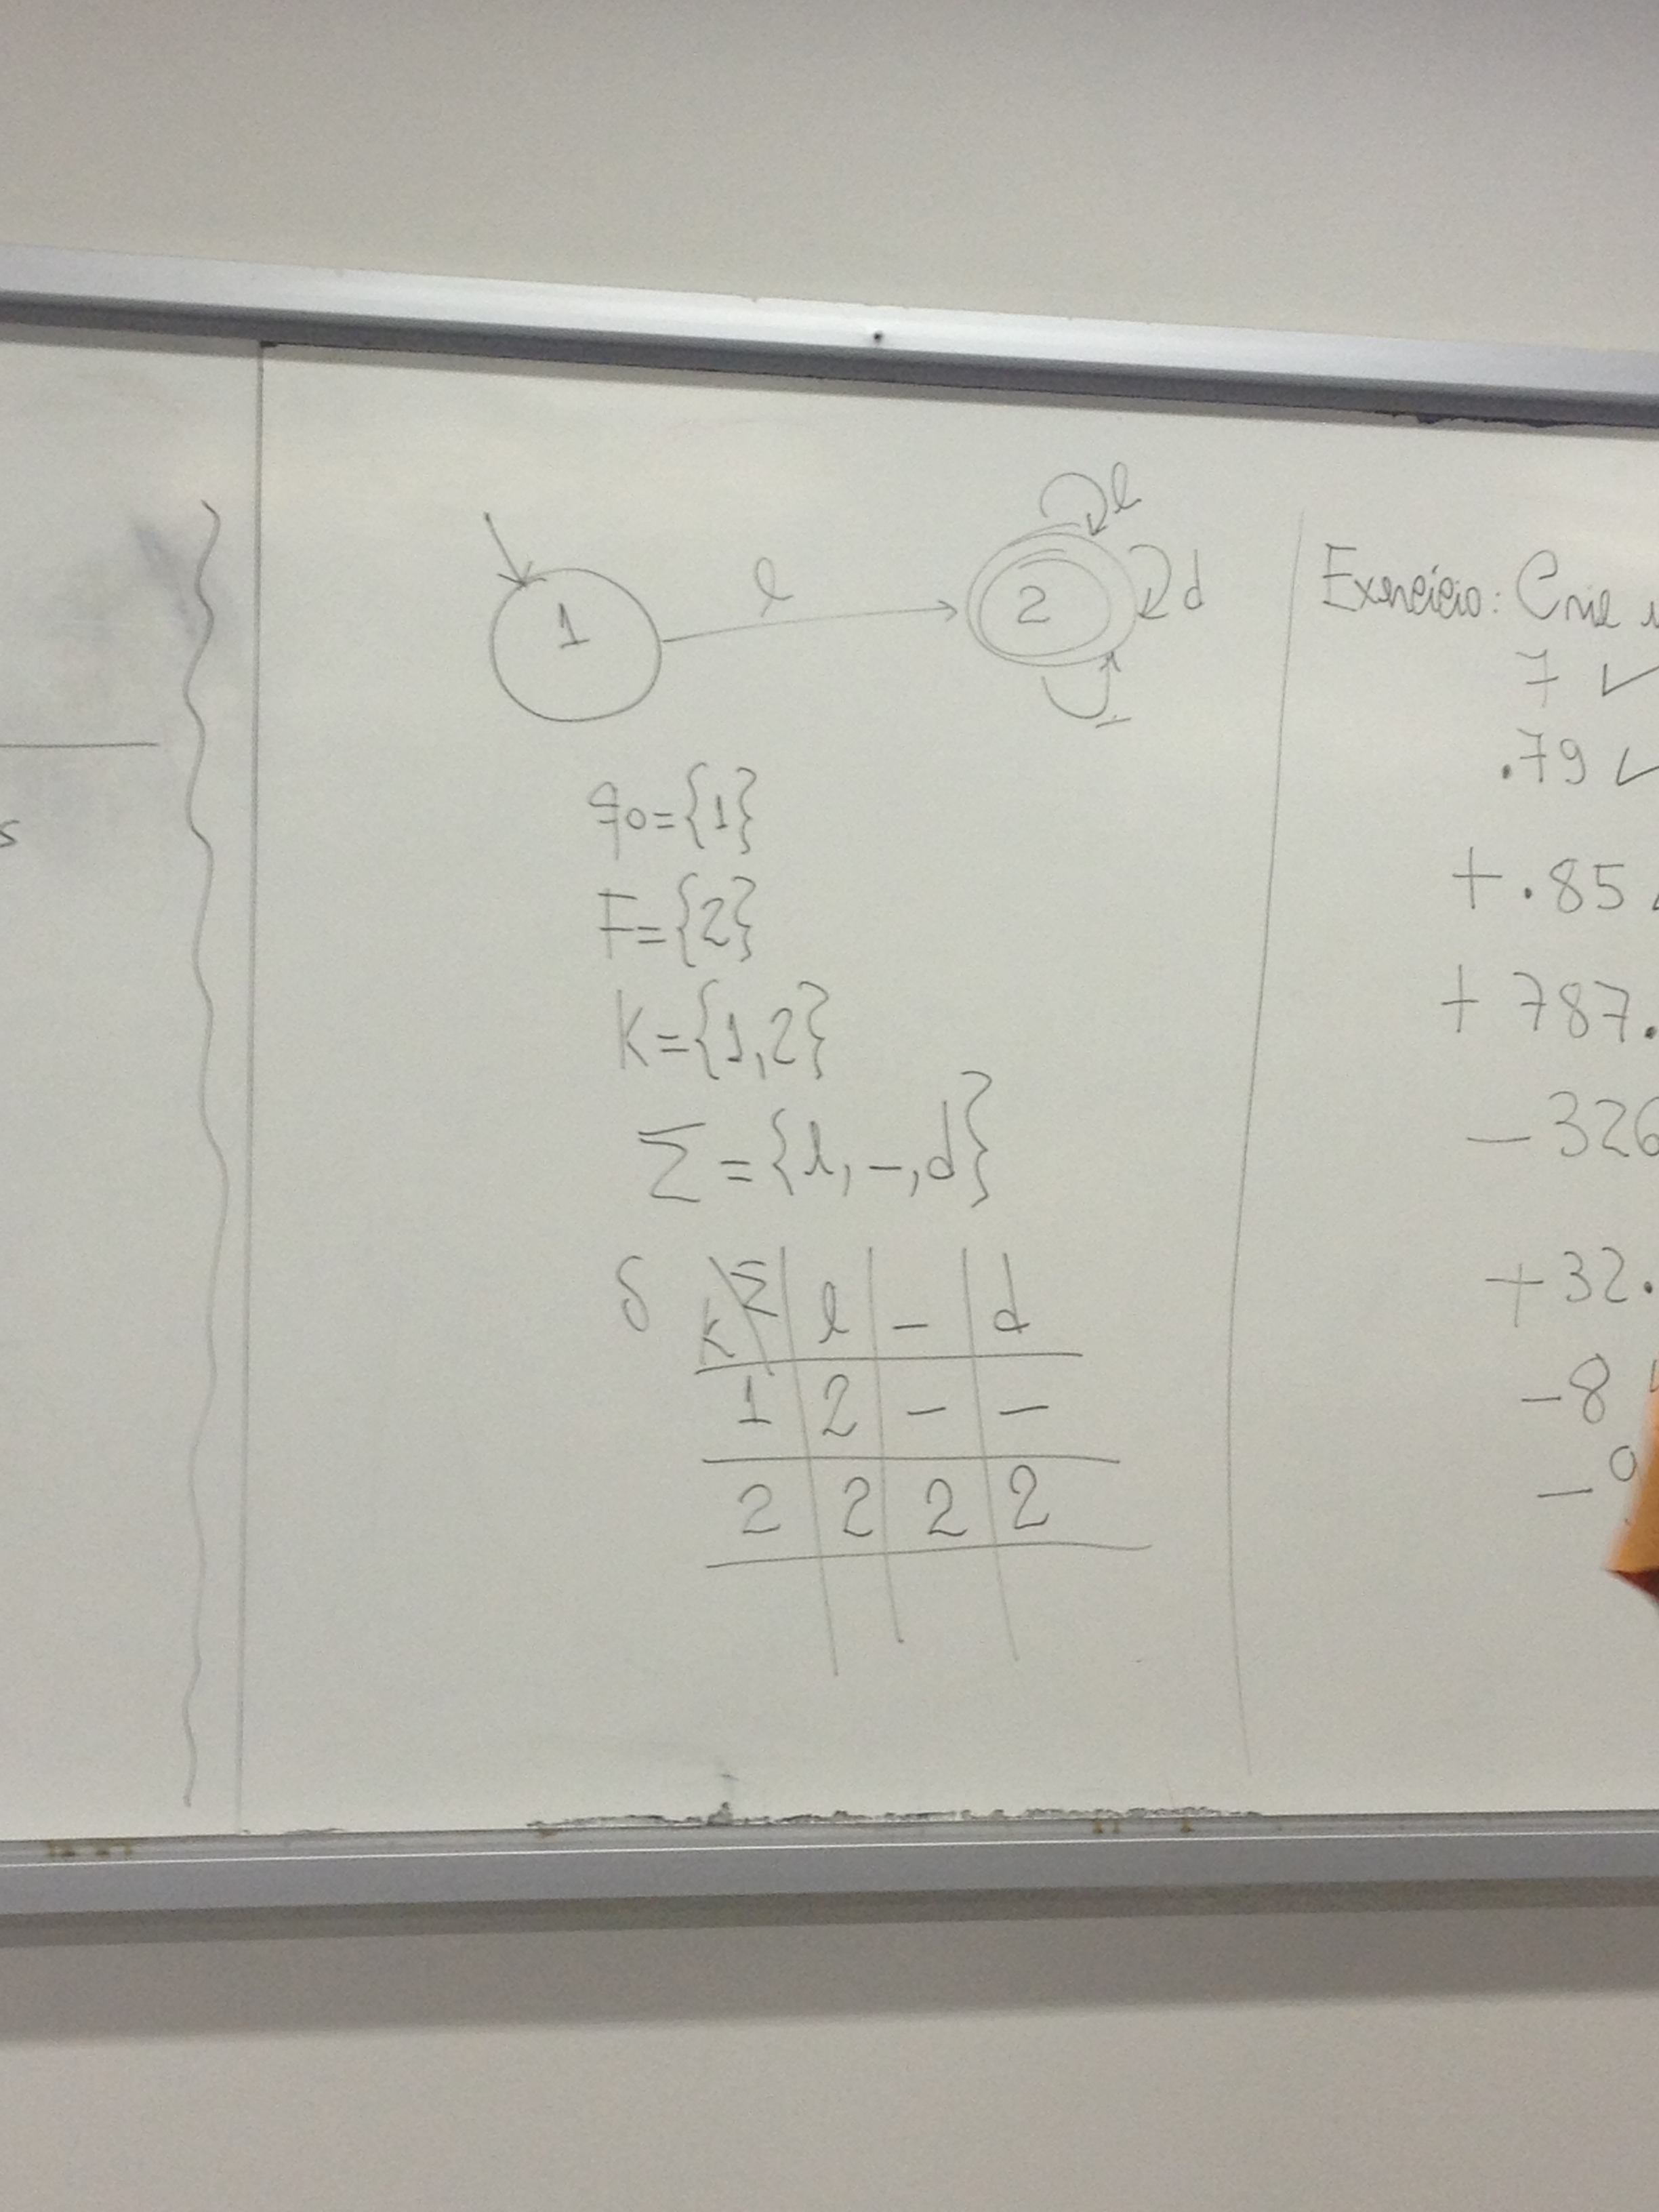 s
l
l
1
2
d
-
q0={1}
F={2}
K={1,2}
Σ={l,-,d}
δ K Σ l - d
1 2 - -
2 2 2 2
Exercício: Crie
7 ✓
.79 ✓
+.85
+ 787.
-326
+32.
-8
-9